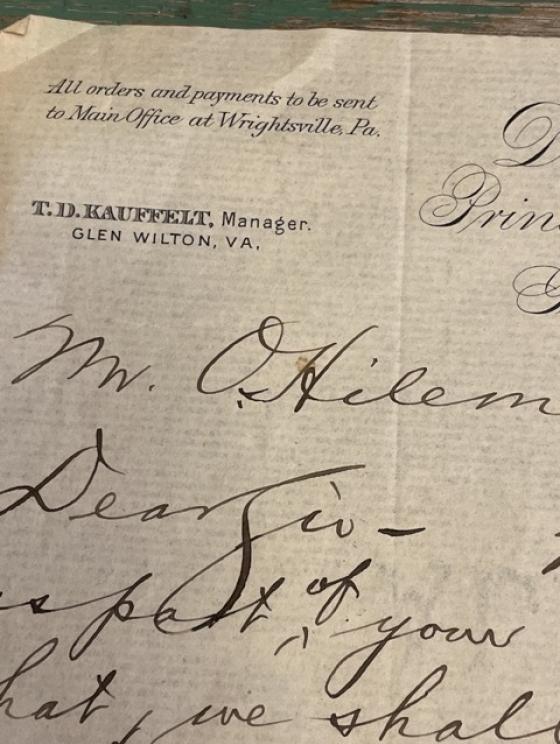 All orders and payments to be sent
to Main Office at Wrightsville, Pa.
T. D. KAUFFELT, Manager.
GLEN WILTON, VA,
Prin
Mr. O. Hilem
Dear Sir –
spect of your
hat, we shall